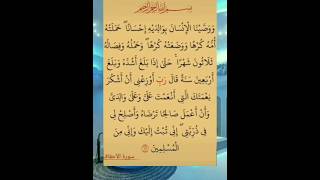 بسم الله الرحمن الرحيم
وَوَصَّيْنَا الْإِنْسَانَ بِوَالِدَيْهِ إِحْسَانًا ۖ حَمَلَتْهُ
أُمُّهُ كُرْهًا وَوَضَعَتْهُ كُرْهًا ۖ وَحَمْلُهُ وَفِصَالُهُ
ثَلَاثُونَ شَهْرًا ۚ حَتَّىٰ إِذَا بَلَغَ أَشُدَّهُ وَبَلَغَ
أَرْبَعِينَ سَنَةً قَالَ رَبِّ أَوْزِعْنِي أَنْ أَشْكُرَ
نِعْمَتَكَ الَّتِي أَنْعَمْتَ عَلَيَّ وَعَلَىٰ وَالِدَيَّ
وَأَنْ أَعْمَلَ صَالِحًا تَرْضَاهُ وَأَصْلِحْ لِي
فِي ذُرِّيَّتِي ۖ إِنِّي تُبْتُ إِلَيْكَ وَإِنِّي مِنَ
الْمُسْلِمِينَ
سورة الأحقاف